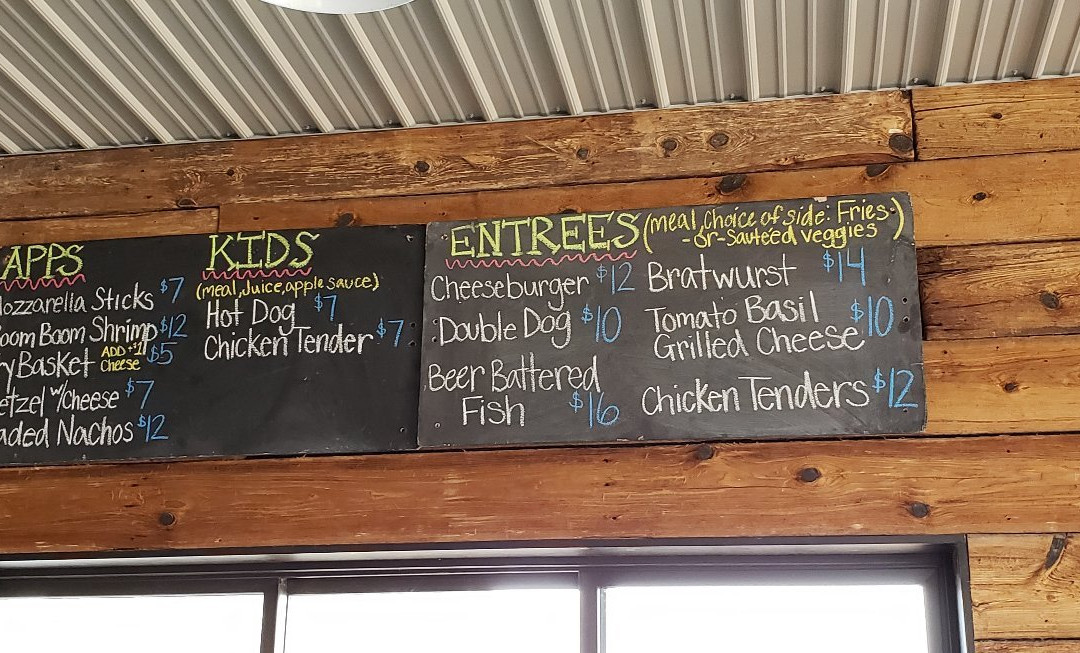 APPS
Mozzarella Sticks $7
Boom Boom Shrimp $12
Basket ADD +$1 Cheese $5
w/cheese $7
Nachos $12
KIDS
(meal, Juice, apple sauce)
Hot Dog $7
Chicken Tender $7
ENTREES (meal, Choice of side: Fries
-or- Sauteéd veggies)
Cheeseburger $12
Double Dog $10
Beer Battered
Fish $16
Bratwurst $14
Tomato Basil
Grilled Cheese $10
Chicken Tenders $12